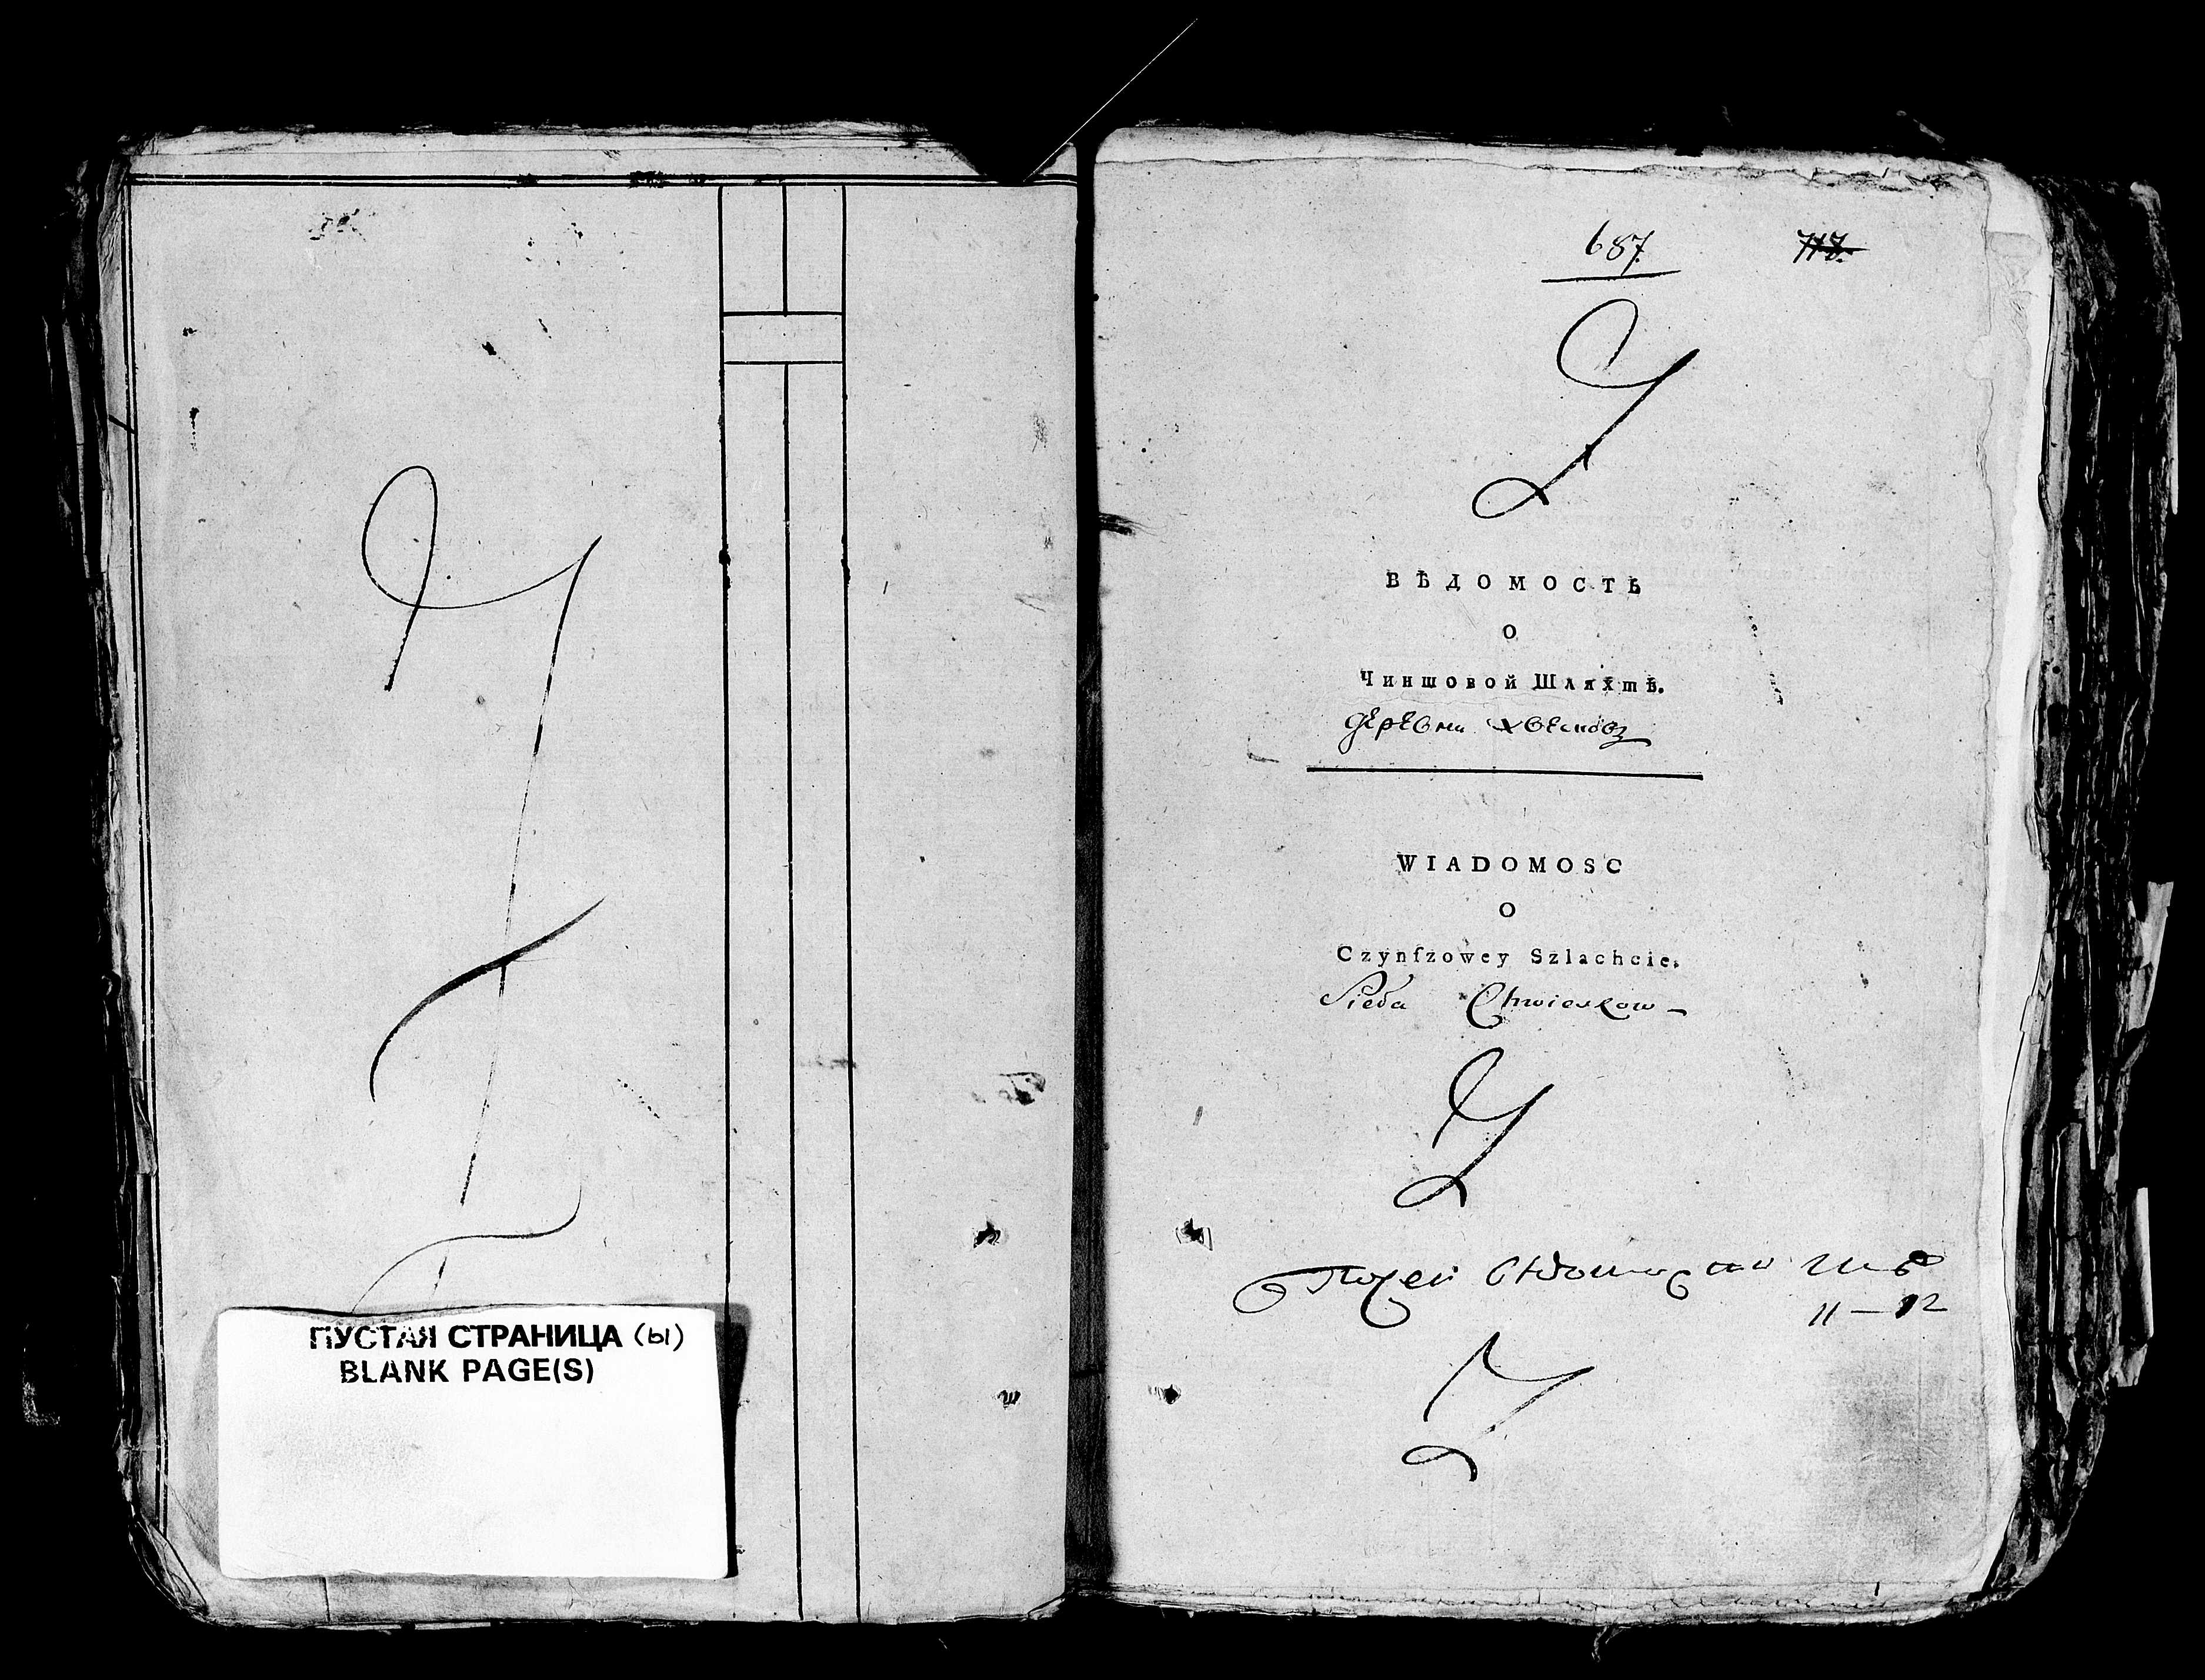 ПУСТАЯ СТРАНИЦА (Ы)
BLANK PAGE(S)
687.
717.
ВѢДОМОСТЬ
О
Чиншовой Шляхтѣ.
деревни Хвеськовъ
WIADOMOSC
O
Czynſzowey Szlachcie.
Chwieskow
11 — 12